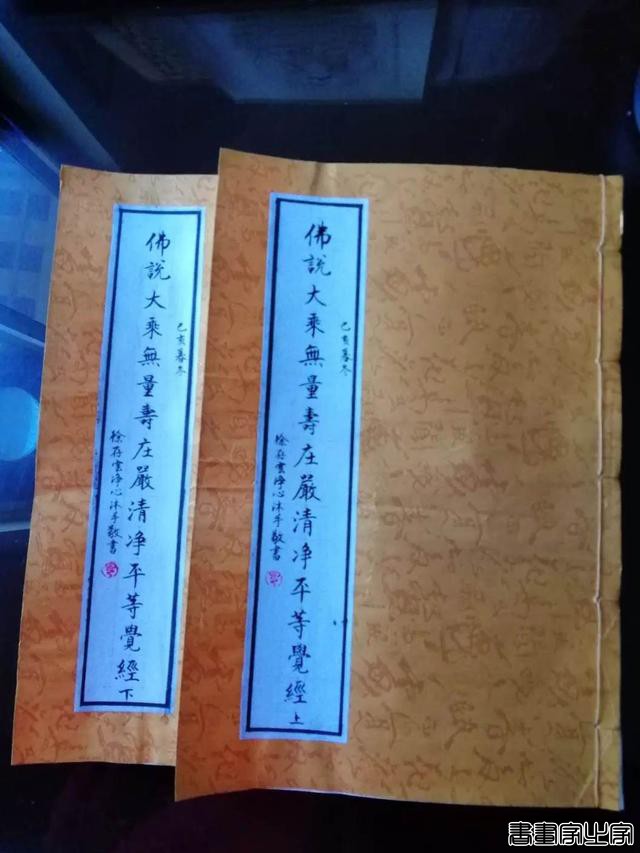 己亥暮冬
佛說大乘無量壽庄嚴清净平等覺經上
徐存雲净心沐手敬書
己亥暮冬
佛說大乘無量壽庄嚴清净平等覺經下
徐存雲净心沐手敬書
書畫家之家